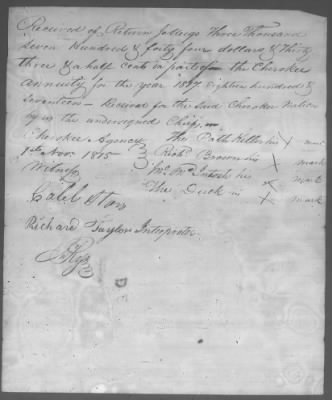 Received of Return J Meigs Three Thousand
Seven Hundred & forty four dollars & Thirty
three & a half Cents in part for the Cherokee
annuity for the year 1817 Eighteen hundred &
seventeen — Received for the Said Cherokee Nation
by us the undersigned Chiefs
Cherokee Agency The Path Killer his X mark
1st Nov. 1815 Richd Brown his X mark
Witness Jno McIntosh his X mark
The Duck his X mark
Caleb Starr
Richard Taylor Interpreter